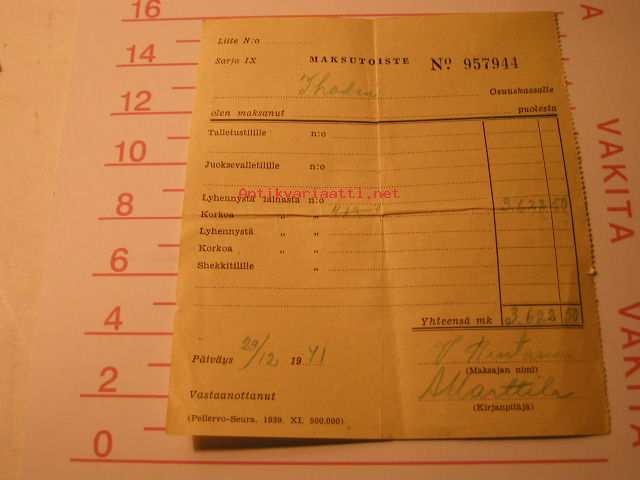 16
14
12
10
8
6
4
2
0
VAKITA
VAKITA
Liite N:o
Sarja IX MAKSUTOISTE No 957944
Osuuskassalle
olen maksanut puolesta
Talletustilille n:o
Juoksevalletilille n:o
Antikvariaatti.net
Lyhennystä lainasta n:o 3.622 50
Korkoa " "
Lyhennystä " "
Korkoa " "
Shekkitilille "
Yhteensä mk 3.622 50
Päiväys 29/12 1941
(Maksajan nimi)
Vastaanottanut A Marttila
(Kirjanpitäjä)
(Pellervo-Seura. 1939. XI. 500.000)